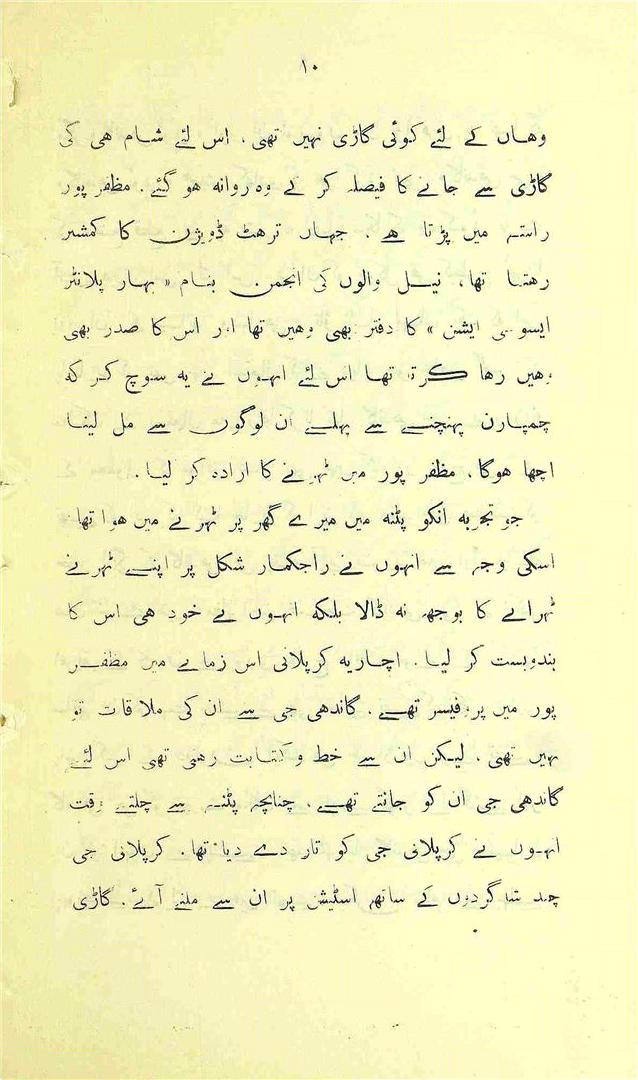 ۱۰
وهاں کے لئے کوئی گاڑی نہیں تھی. اس لئے شام هی کی
گاڑی سے جانے کا فیصلہ کر کے وہ روانہ هو گئے. مظفر پور
راستہ میں پڑتا هے. جہاں ترهٹ ڈویژن کا کمشنر
رهتا تھا، نیل والوں کی انجمن بنام « بہار پلانٹر
ایسوسی ایشن » کا دفتر بھی وهیں تھا اور اس کا صدر بھی
وهیں رها کرتا تھا اس لئے انہوں نے یہ سوچ کر کہ
چمپارن پہنچنے سے پہلے ان لوگوں سے مل لینا
اچھا هوگا. مظفر پور میں ٹہرنے کا ارادہ کر لیا.
جو تجربہ انکو پٹنہ میں میرے گھر پر ٹہرنے میں هوا تھا.
اسکی وجہ سے انہوں نے راجکمار شکل پر اپنے ٹہرنے
ٹہرانے کا بوجھ نہ ڈالا بلکہ انہوں نے خود هی اس کا
بندوبست کر لیا. اچاریہ کرپلانی اس زمانے میں مظفر
پور میں پروفیسر تھے. گاندھی جی سے ان کی ملاقات تو
نہیں تھی. لیکن ان سے خط و کتابت رهتی تھی اس لئے
گاندھی جی ان کو جانتے تھے. چنانچہ پٹنہ سے چلتے وقت
انہوں نے کرپلانی جی کو تار دے دیا تھا. کرپلانی جی
چند شاگردوں کے ساتھ اسٹیشن پر ان سے ملنے آئے. گاڑی